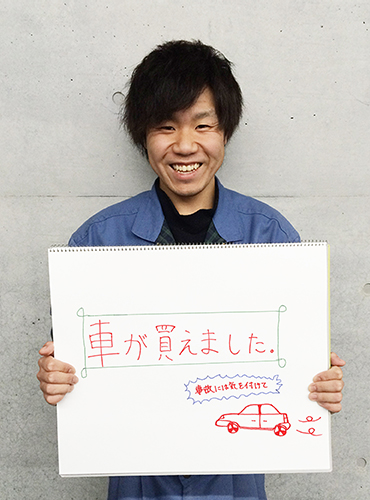 車が買えました。
事故には気を付けて